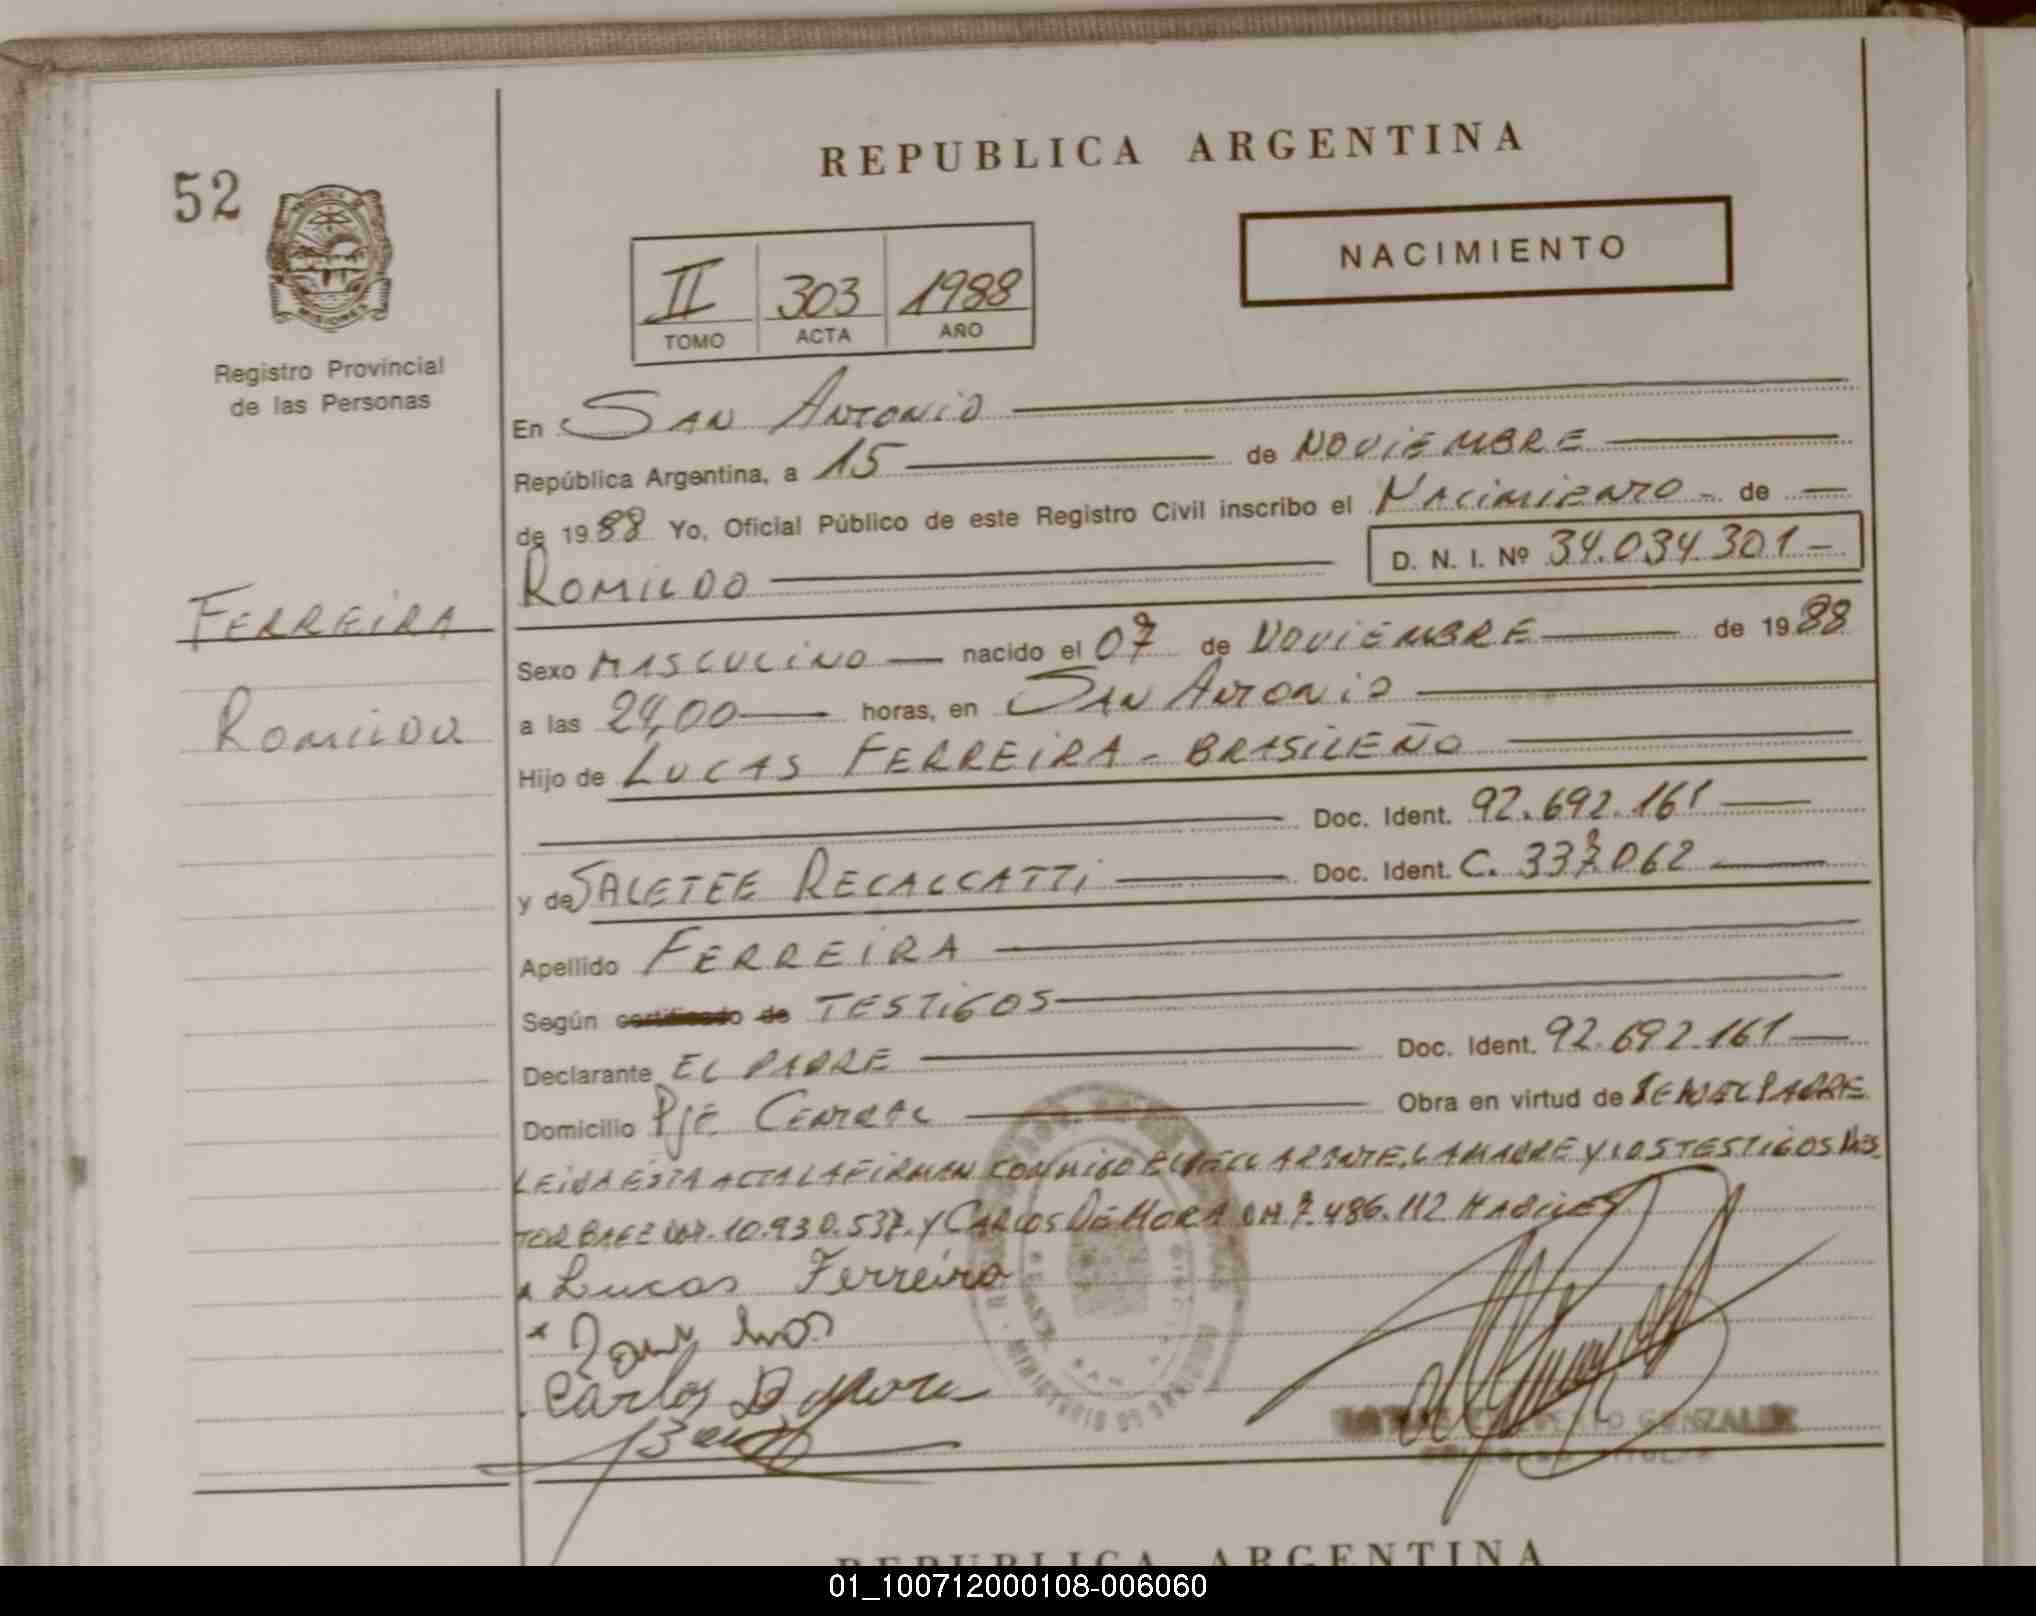 52
REPUBLICA ARGENTINA
NACIMIENTO
II 303 1988
TOMO ACTA AÑO
Registro Provincial
de las Personas
MISIONES
En SAN ANTONIO
República Argentina, a 15 de NOVIEMBRE
de 1988 Yo, Oficial Público de este Registro Civil inscribo el NACIMIENTO de
ROMILDO D. N. I. Nº 34.034.301
FERREIRA
ROMILDO
Sexo MASCULINO nacido el 07 de NOVIEMBRE de 1988
a las 24,00 horas, en SAN ANTONIO
Hijo de LUCAS FERREIRA - BRASILEÑO
Doc. Ident. 92.692.161
y de SALETEE RECALCATTI Doc. Ident. C. 337.062
Apellido FERREIRA
Según certificado de TESTIGOS
Declarante EL PADRE Doc. Ident. 92.692.161
Domicilio PJE. CENTRAL Obra en virtud de SER EL PADRE
LEIDA ESTA ACTA LA FIRMAN CONMIGO EL DECLARANTE, LA MADRE Y LOS TESTIGOS
BAEZ 10.930.537. Y CARLOS DE MORA 7.486.112 HABILES
x Lucas Ferreira
x
Carlos D Mora
Baez
MINISTERIO DE GOBIERNO
GONZALEZ
TITULAR
REPUBLICA ARGENTINA
01_100712000108-006060